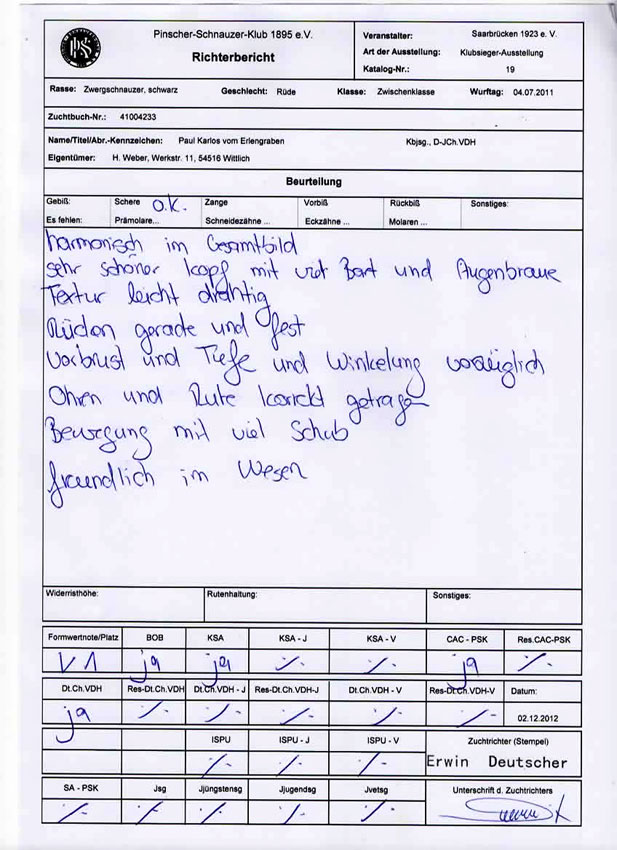 Pinscher-Schnauzer-Klub 1895 e.V.
Richterbericht
Veranstalter: Saarbrücken 1923 e. V.
Art der Ausstellung: Klubsieger-Ausstellung
Katalog-Nr.: 19
Rasse: Zwergschnauzer, schwarz Geschlecht: Rüde Klasse: Zwischenklasse Wurftag: 04.07.2011
Zuchtbuch-Nr.: 41004233
Name/Titel/Abr.-Kennzeichen: Paul Karlos vom Erlengraben Kbjsg., D-JCh.VDH
Eigentümer: H. Weber, Werkstr. 11, 54516 Wittlich
Beurteilung
Gebiß: Schere o.k. Zange Vorbiß Rückbiß Sonstiges:
Es fehlen: Prämolare... Schneidezähne ... Eckzähne ... Molaren ...
harmonisch im Gesamtbild
sehr schöner Kopf mit viel Bart und Augenbraue
Textur leicht drahtig
Rücken gerade und fest
Vorbrust und Tiefe und Winkelung vorzüglich
Ohren und Rute korrekt getragen
Bewegung mit viel Schub
freundlich im Wesen
Widerristhöhe: Rutenhaltung: Sonstiges:
Formwertnote/Platz BOB KSA KSA - J KSA - V CAC - PSK Res.CAC-PSK
V 1 ja ja ·/. ·/. ja ·/.
Dt.Ch.VDH Res-Dt.Ch.VDH Dt.Ch.VDH - J Res-Dt.Ch.VDH-J Dt.Ch.VDH - V Res-Dt.Ch.VDH-V Datum:
ja ·/. ·/. ·/. ·/. ·/. 02.12.2012
ISPU ISPU - J ISPU - V Zuchtrichter (Stempel)
·/. ·/. ·/. Erwin Deutscher
SA - PSK Jsg Jjüngstensg Jjugendsg Jvetsg Unterschrift d. Zuchtrichters
·/. ·/. ·/. ·/. ·/.